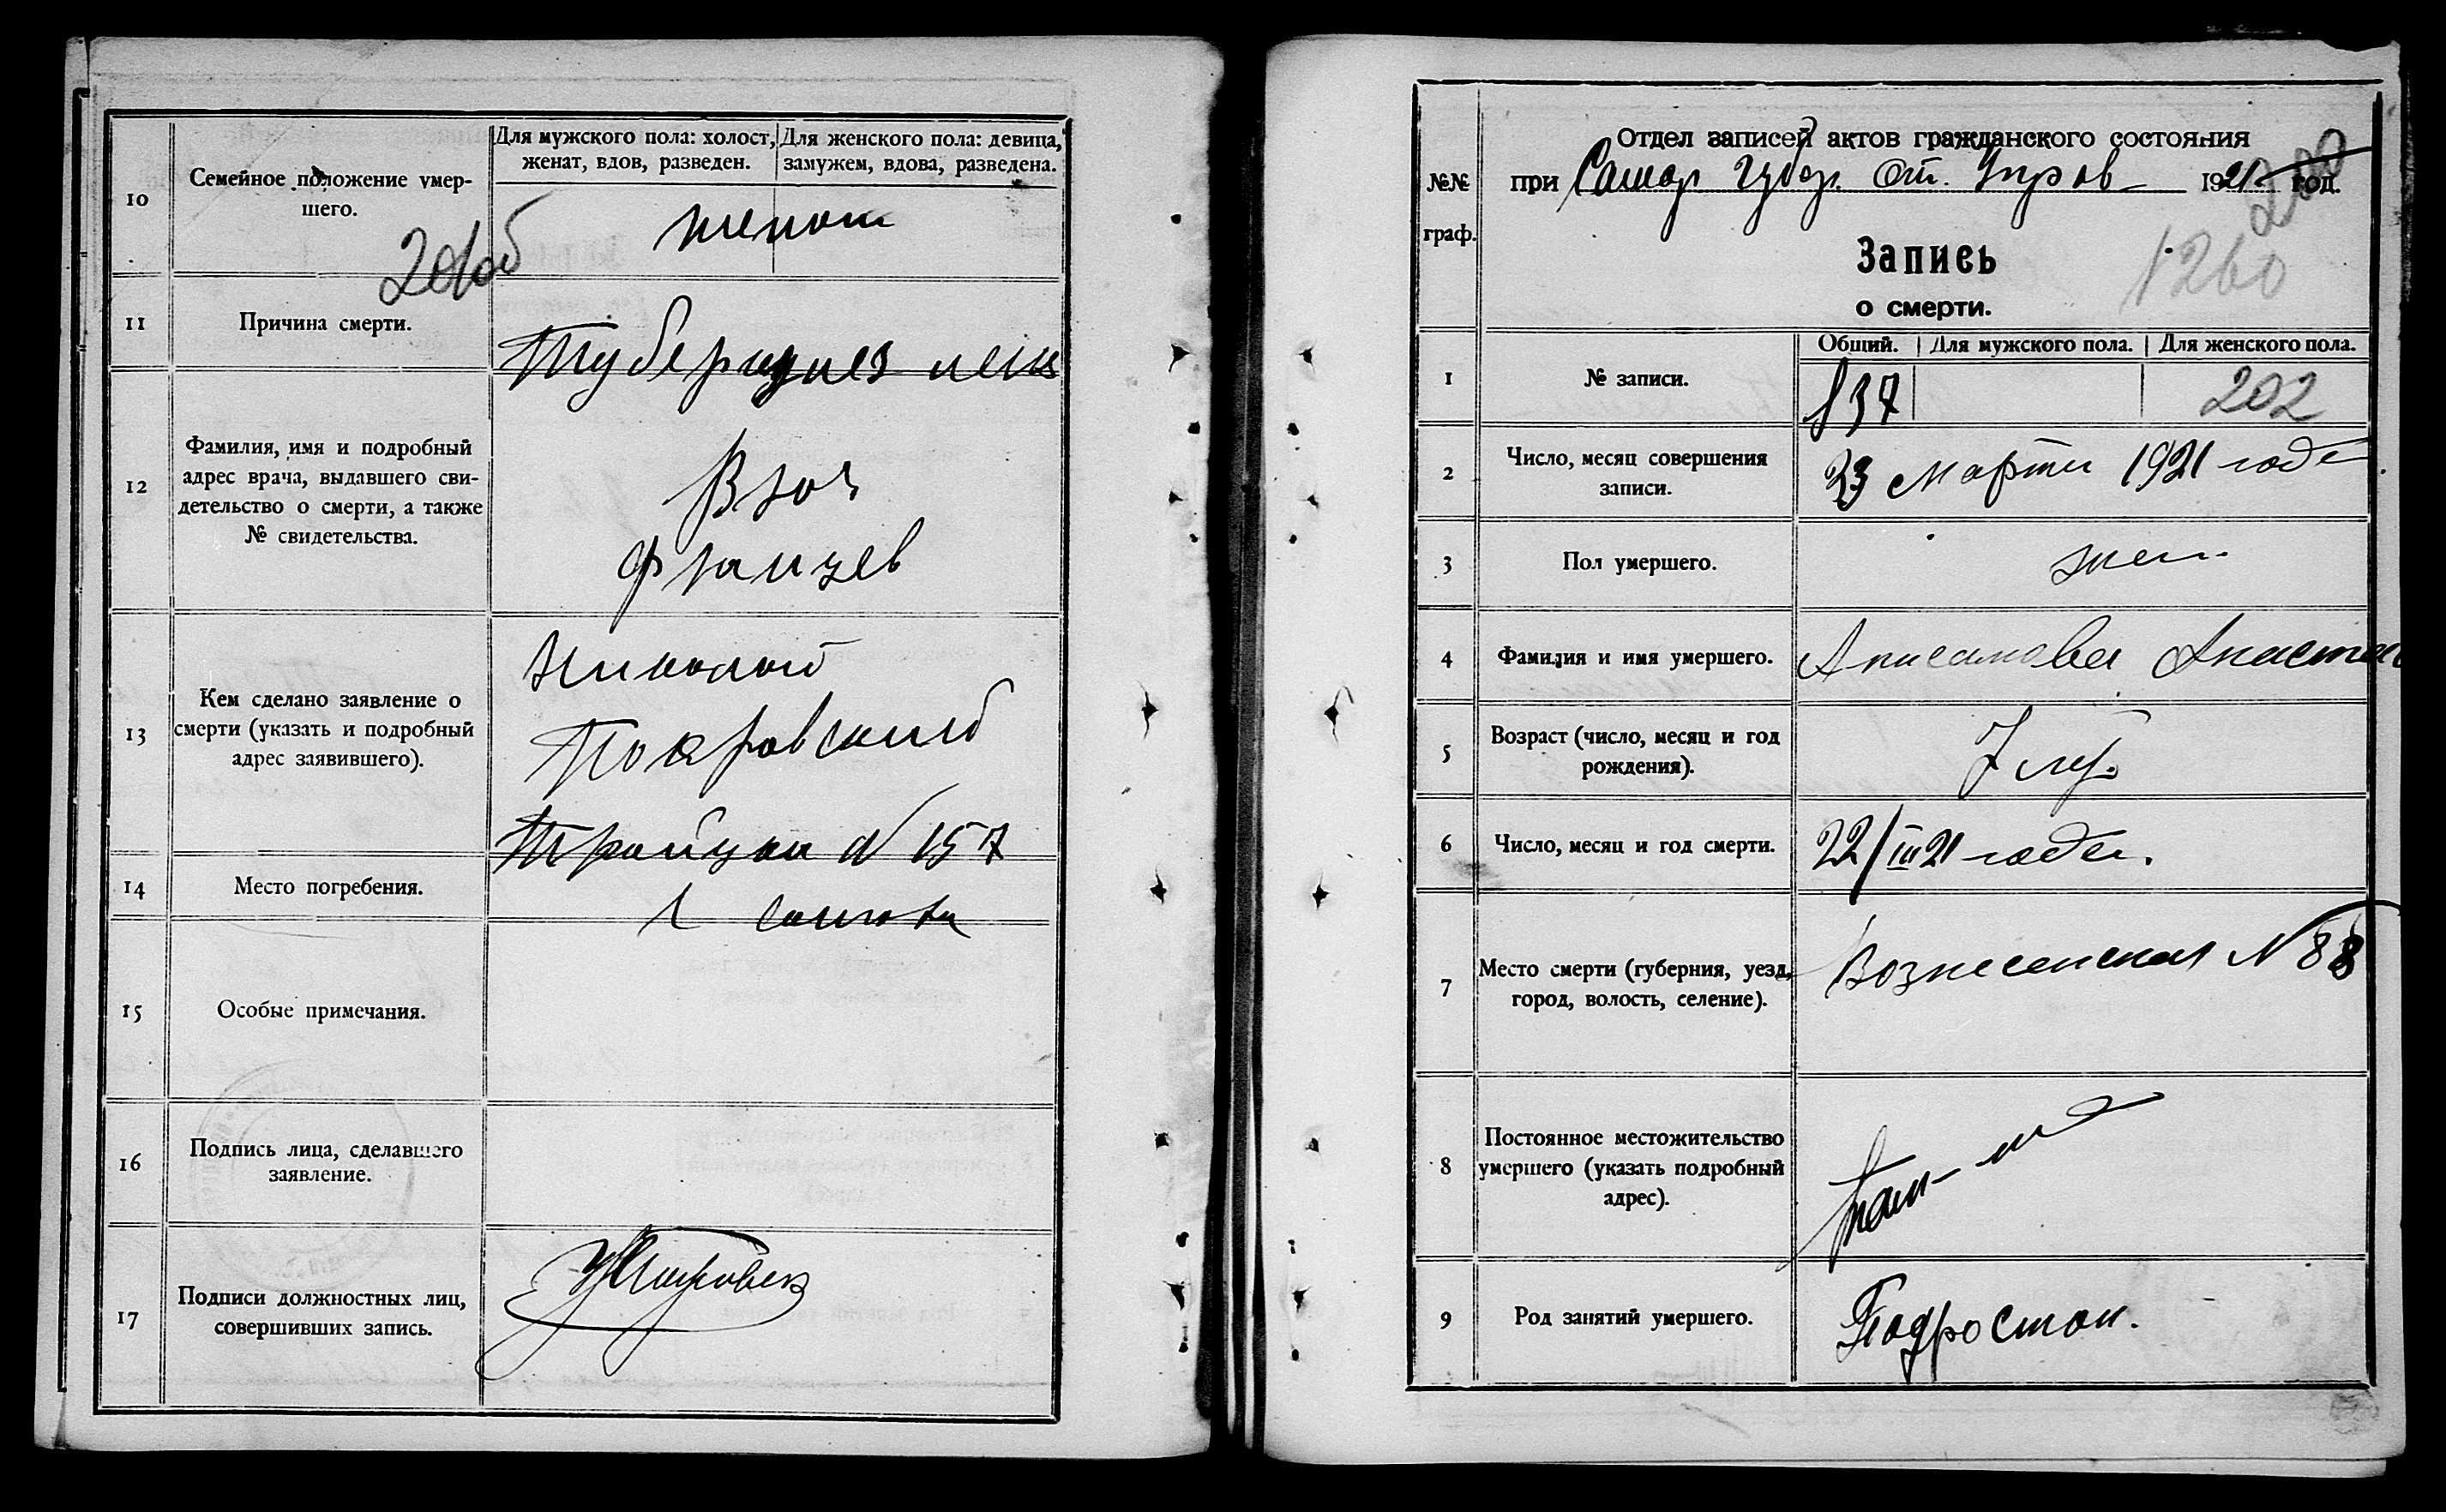 10
Семейное положение умер-
шего.
Для мужского пола: холост,
женат, вдов, разведен.
Для женского пола: девица,
замужем, вдова, разведена.
женат
11
Причина смерти.
12
Фамилия, имя и подробный
адрес врача, выдавшего сви-
детельство о смерти, а также
№ свидетельства.
Врач
Францев
13
Кем сделано заявление о
смерти (указать и подробный
адрес заявившего).
Николай
Покровский
Троицкая N 157
14
Место погребения.
15
Особые примечания.
16
Подпись лица, сделавшего
заявление.
17
Подписи должностных лиц,
совершивших запись.
№№
граф.
Отдел записей актов гражданского состояния
при Самар Губер. От. Упров 1921 год.
1260
Запись
о смерти.
1
№ записи.
Общий.
Для мужского пола.
Для женского пола.
837
202
2
Число, месяц совершения
записи.
23 Марта 1921 года
3
Пол умершего.
жен.
4
Фамилия и имя умершего.
Анисимова
5
Возраст (число, месяц и год
рождения).
7 лет
6
Число, месяц и год смерти.
22/III 21 года.
7
Место смерти (губерния, уезд,
город, волость, селение).
Вознесенская N 88
8
Постоянное местожительство
умершего (указать подробный
адрес).
9
Род занятий умершего.
Подросток.